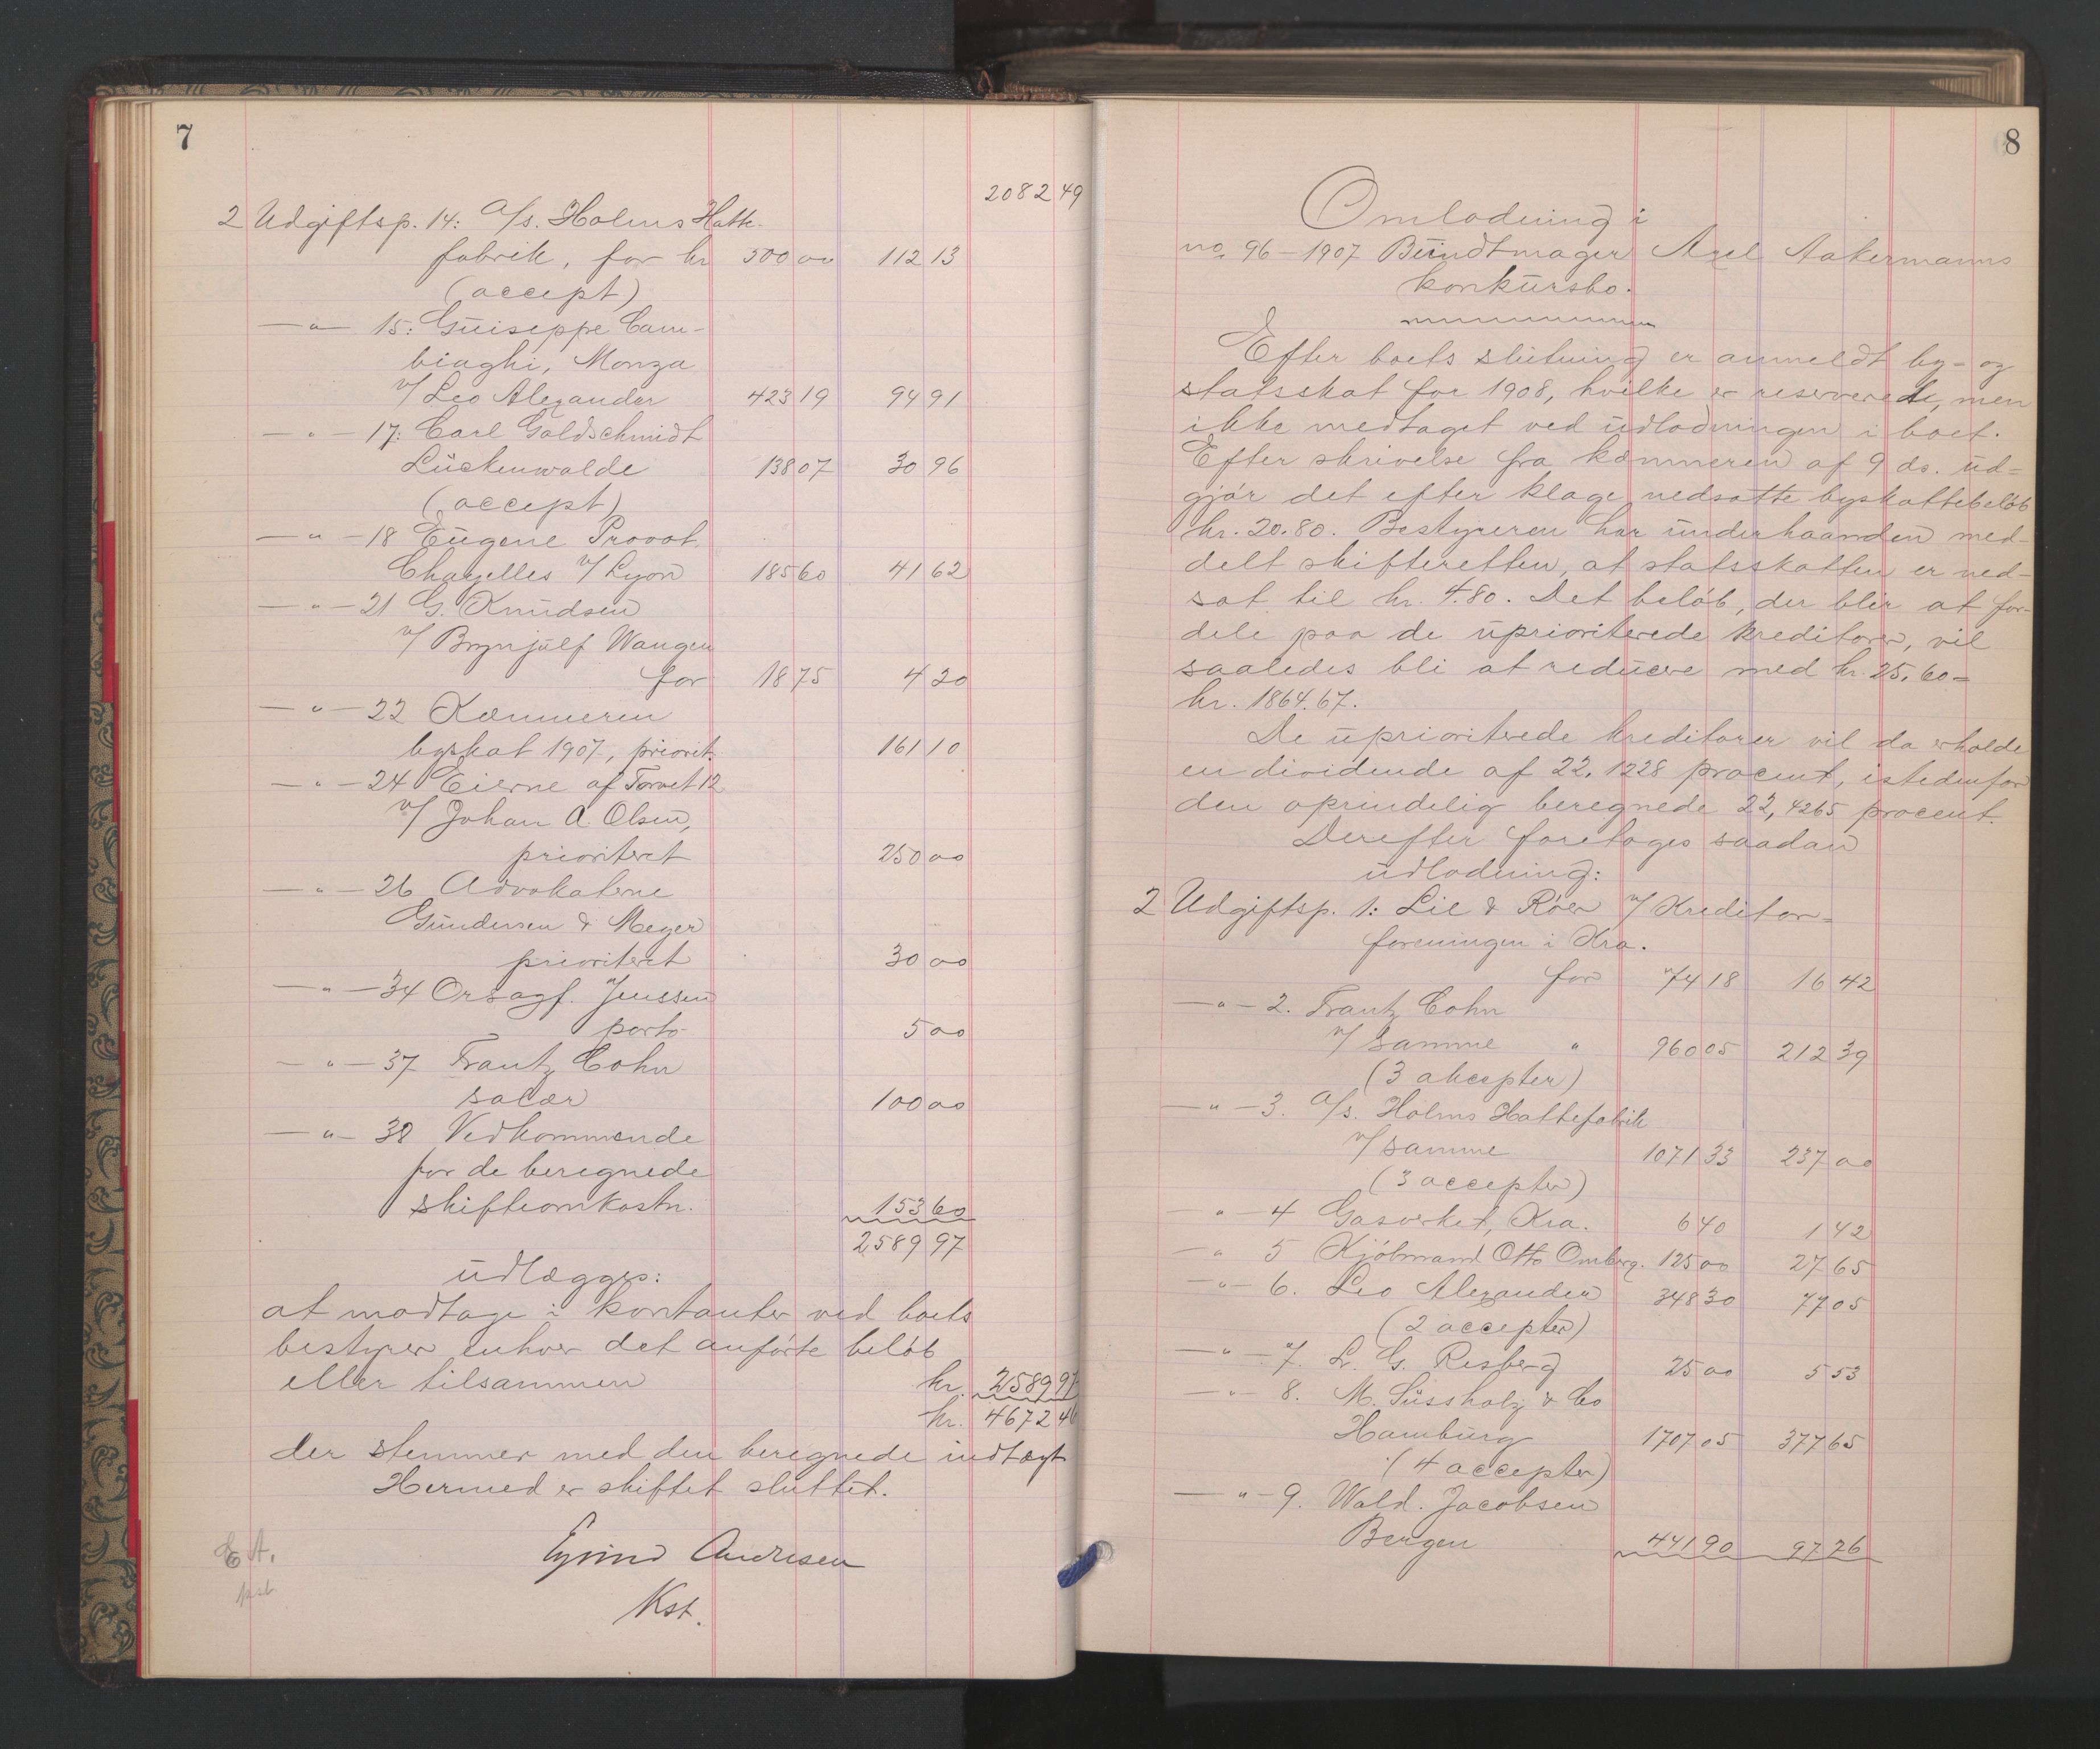 7
2082 49
2 Udgiftsp. 14: A/s. Holms Hatte-
fabrik, for kr 500 00 112 13
(accept)
—"— 15: Guiseppe Cam-
biaghi, Monza
v/ Leo Alexander 423 19 94 91
—"— 17: Carl Goldschmidt
Lückenwalde 138 07 30 96
(accept)
—"— 18 Eugene Provot
Chazelles v/ Lyon 185 60 41 62
—"— 21 G. Knudsen
v/ Brynjulf Wangen
for 18 75 4 20
—"— 22 Kæmneren
byskat 1907, priorit. 161 10
—"— 24 Eierne af Torvet 12
v/ Johan A. Olsen,
prioriteret 250 00
—"— 26 Advokaterne
Gundersen & Meyer
prioriteret 30 00
—"— 34 Orsagf. Jenssen
porto 5 00
—"— 37 Frantz Cohn
salær 100 00
—"— 38 Vedkommende
for de beregnede
skifteomkostn. 153 60
2589 97
udlægges:
at modtage i kontanter ved boets
bestyrer enhver det anførte beløb
eller tilsammen kr. 2589 97
kr. 4672 46
der stemmer med den beregnede indtægt
Hermed er skiftet sluttet.
Eyvind Andresen
Kst.
E A.
8
Omlodning i
no 96 - 1907 Bundtmager Axel Aakermanns
konkursbo.
Efter boets slutning er anmeldt by- og
statsskat for 1908, hvilke er reserverede, men
ikke medtaget ved udlodningen i boet.
Efter skrivelse fra kæmneren af 9 ds. ud-
gjør det efter klage nedsatte byskattebeløb
kr. 20.80. Bestyreren har underhaanden med-
delt skifteretten, at statsskatten er ned-
sat til kr. 4.80. Det beløb, der blir at for-
dele paa de uprioriterede kreditorer, vil
saaledes bli at reducere med kr. 25.60 =
kr. 1864.67.
De uprioriterede kreditorer vil da erholde
en dividende af 22,1228 procent, istedenfor
den oprindelig beregnede 22,4265 procent.
Derefter foretages saadan
udlodning:
2 Udgiftsp. 1: Lie & Röer v/ Kreditor-
foreningen i Kra.
for 74 18 16 42
—"— 2. Frantz Cohn
v/ samme " 960 05 212 39
(3 akcepter)
—"— 3. A/s. Holms Hattefabrik
v/ samme 1071 33 237 00
(3 accepter)
—"— 4 Gasverket, Kra. 6 40 1 42
—"— 5 Kjøbmand Otto Omberg. 125 00 27 65
—"— 6. Leo Alexander 348 30 77 05
(2 accepter)
—"— 7. L. G. Resberg 25 00 5 53
—"— 8. M. Süssholz & Co
Hamburg 1707 05 377 65
(4 accepter)
—"— 9. Wald. Jacobsen
Bergen 441 90 97 76